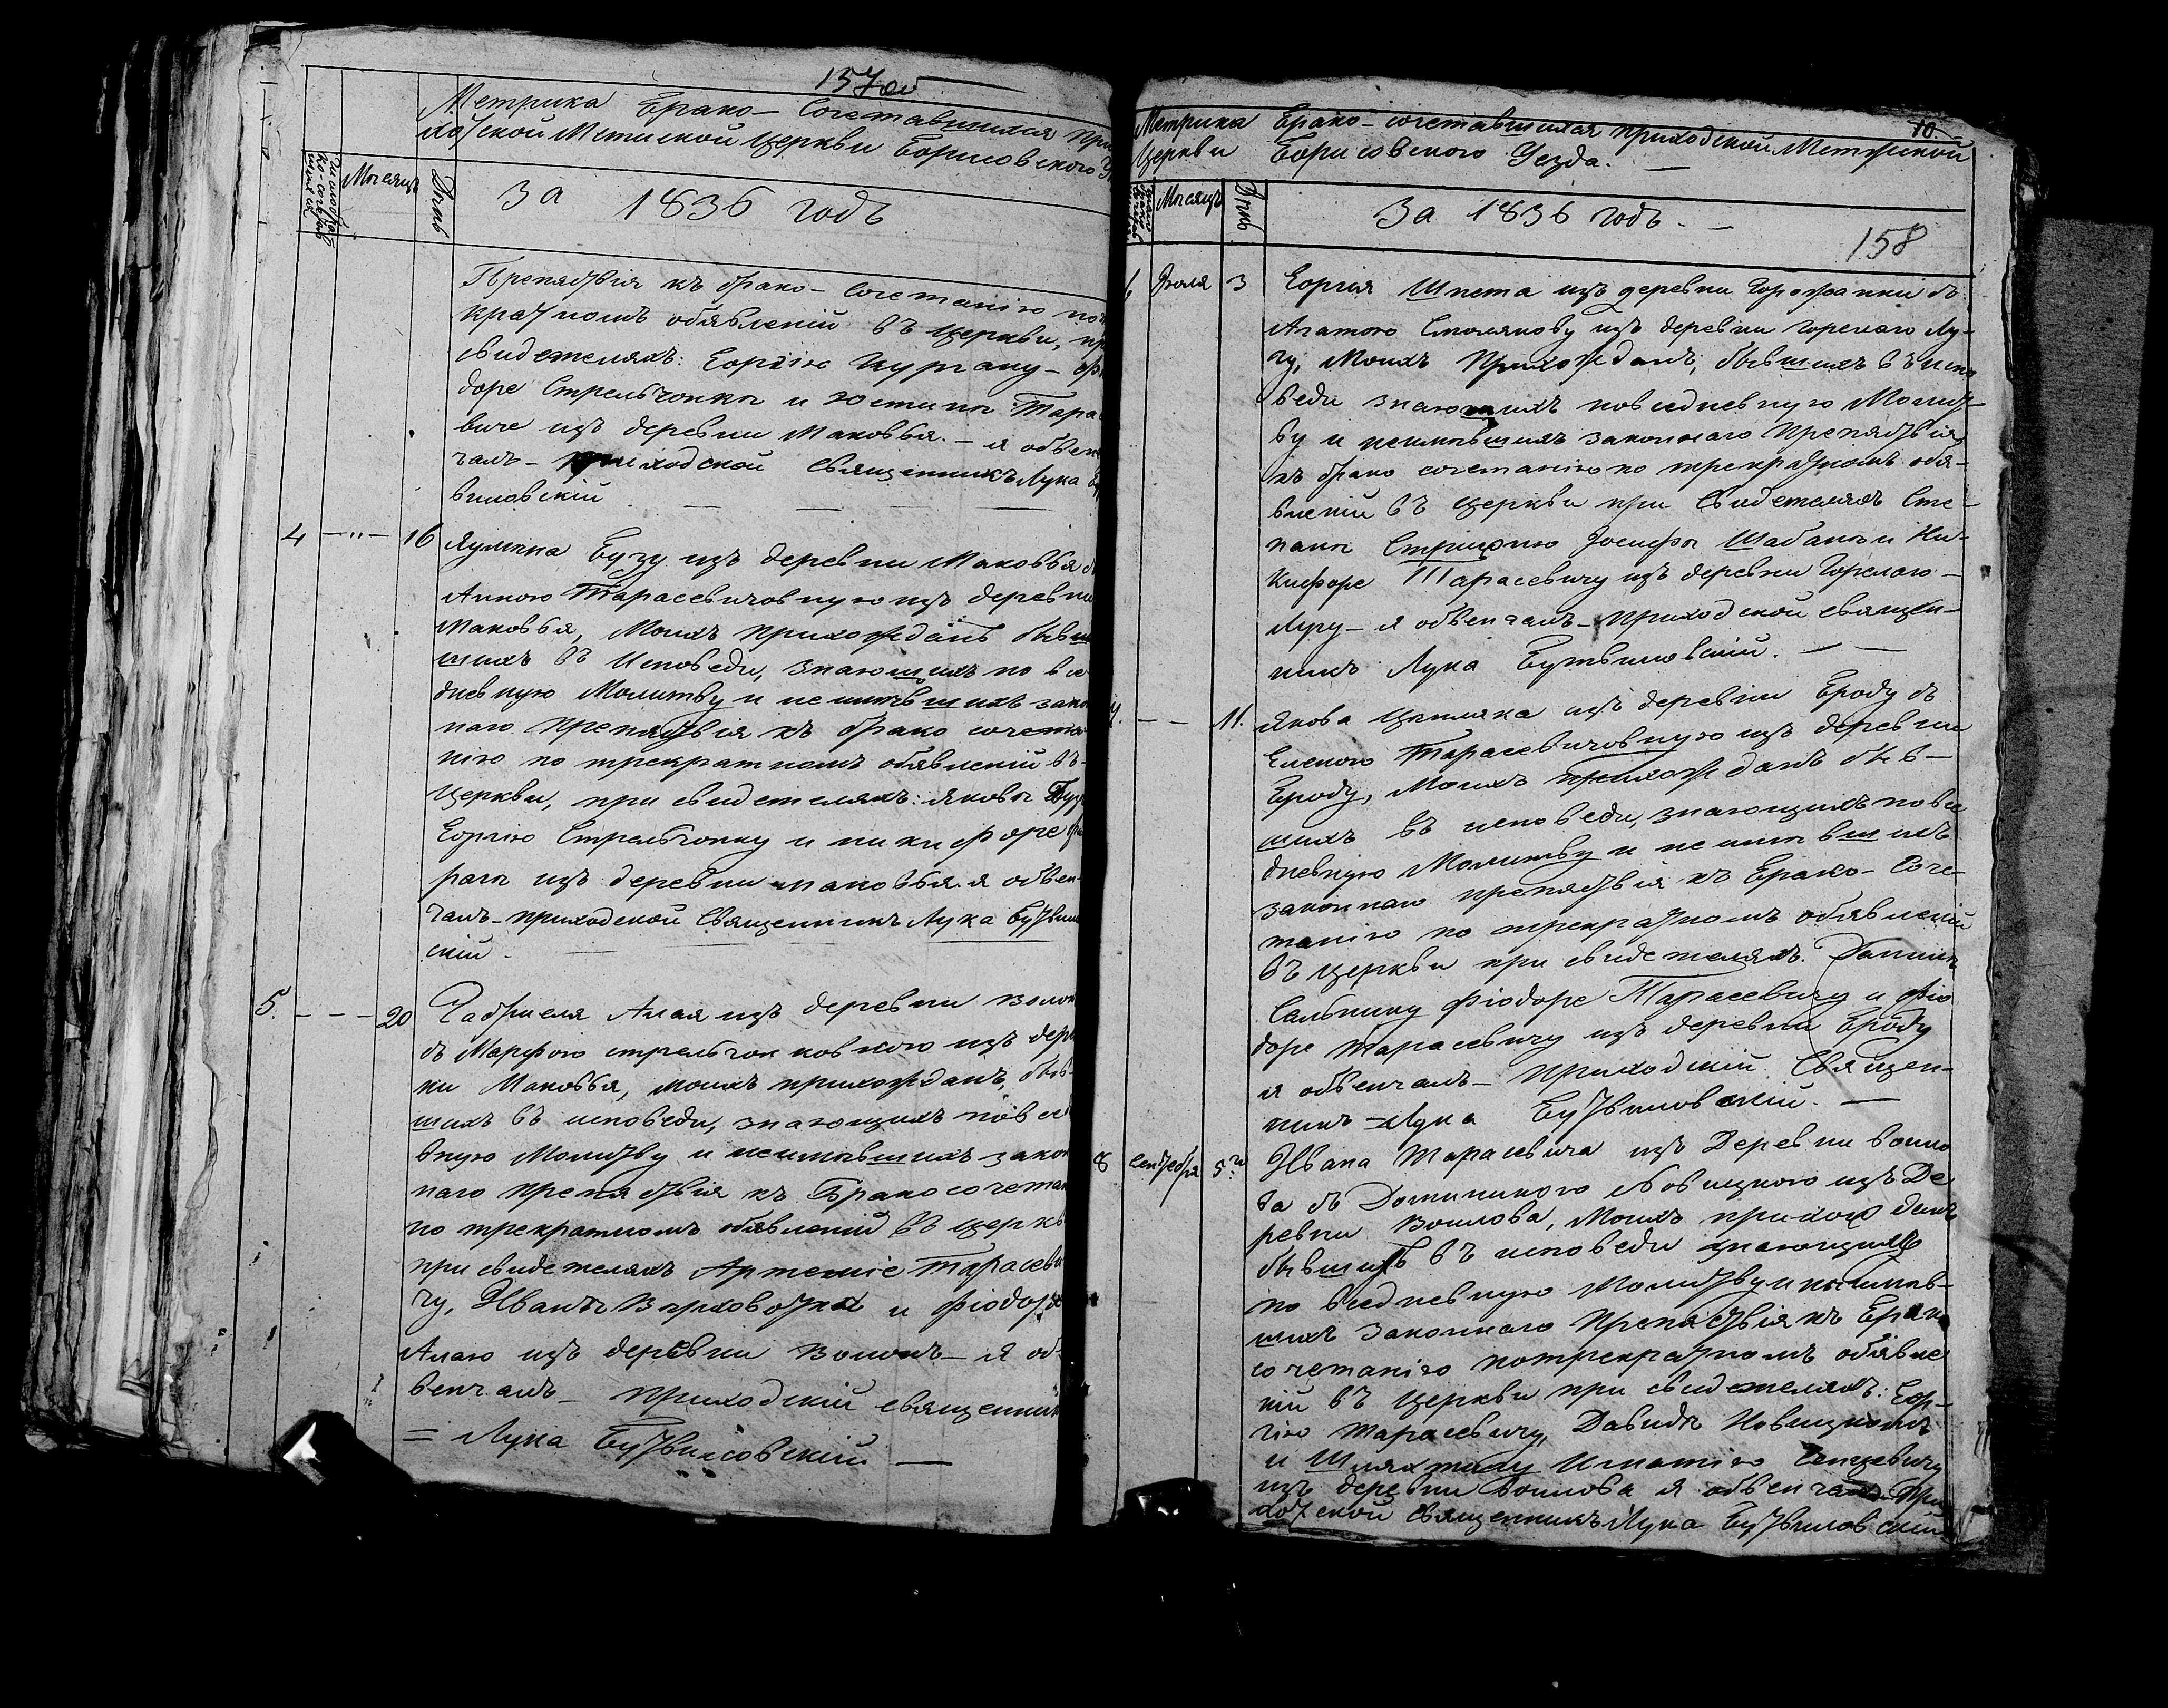 157 об
Метрика Брако-Сочетавшихся При
ходской Мстиской Церкви Борисовского
Месяцъ
День
За 1836 годъ
Препядствія къ брако-сочетанію по
кратномъ обявленій въ церкви, пр
свидетеляхъ: Еоргію Кургану – Фи
доре Стрельчонки и Юстины Тара
виче изъ деревни Маковья. – я объен
чалъ – приходской Священникъ Лука Бут
виловскій
4 — " — 16 Ауляна Бузу изъ деревни Маковья съ
Анною Тарасевичовную изъ деревни
Маковья, Моихъ прихожданъ быв
шихъ въ Исповеди, знающихъ по все
дневную Молитву и неимевшихъ закон
наго препядствія къ брако сочета
нію по трекратномъ обявленій въ
Церкви, при свидетеляхъ: Якове Бузу
Еоргію Стрельчонку и никифоре
рате изъ деревни маковья. я объен-
чалъ – приходской Священникъ Лука Бутвилов
скій.
5. — — — 20 Габріеля Алая изъ деревни Волок
съ Марфою стрельчонковною изъ дерев
ни Маковья, моихъ прихожданъ, быв-
шихъ въ исповеди, знающихъ повсед
вную Молитву и неимевшихъ закон
наго препядствія къ Бракосочетан
по трекратномъ обявленій въ церкв
при свидетеляхъ Артеміе Тарасеви
чу, Иванъ Верховодка и Фіодору
Алаю изъ деревни Волокъ – я об-
венчалъ – приходскій священник
= Лука Бутвиловскій —
10.
Метрика Брако-сочетавшихся приходской Мстижской
Церкви Борисовского Уезда. —
Месяцъ
День
За 1836 годъ. —
158
6 Іюля 3 Еоргія Шпета изъ деревни Горожанки съ
Агатою Смолякову изъ деревни Горелаго Лу-
гу, Моихъ Прихожданъ, бывшихъ въ испо
веди знающихъ повседневную Молит
ву и неимевшихъ законнаго Препядствія
къ брако сочетанію по трекратномъ обя-
вленій въ церкви при Свидетеляхъ Сте-
пане Стрицкію Іосифе Шабане и Ни-
кифоре Тарасевичу изъ деревни Горелаго –
Лугу – я объенчалъ – приходской священ-
никъ Лука Бутвиловскій. — —
7. — — 11. Якова Цепляка изъ деревни Броду съ
Еленою Тарасевичовную изъ деревни
Броду, Моихъ прихожданъ быв –
шихъ въ исповеди, знающихъ по все
дневную Молитву и не имевшихъ
законнаго препядствія къ Брако-Соче-
танію по трекратномъ обявленій
въ церкви при свидетеляхъ. Даніил
Сальнику Фіодоре Тарасевичу и Фіо
доре Тарасевичу изъ деревни Броду
я объенчалъ – Приходскій Священ-
никъ = Лука Бутвиловскій. —
8 Сентября 5го Ивана Тарасевича изъ Деревни Воило
ва съ Доминикою Новицкою изъ Де
ревни Воилова, Моихъ прихожданъ
бывшихъ въ исповеди знающихъ
по вседневную Молитву и неимев-
шихъ законнаго препядствія къ Брако
сочетанію потрекратномъ обявле
ній въ Церкви при свидетеляхъ: Еор-
гію Тарасевичу, Давидъ Новицкомъ
и Шляхтичу Игнатію
изъ деревни Воилова я объенчалъ При
ходской Священникъ Лука Бутвиловскій